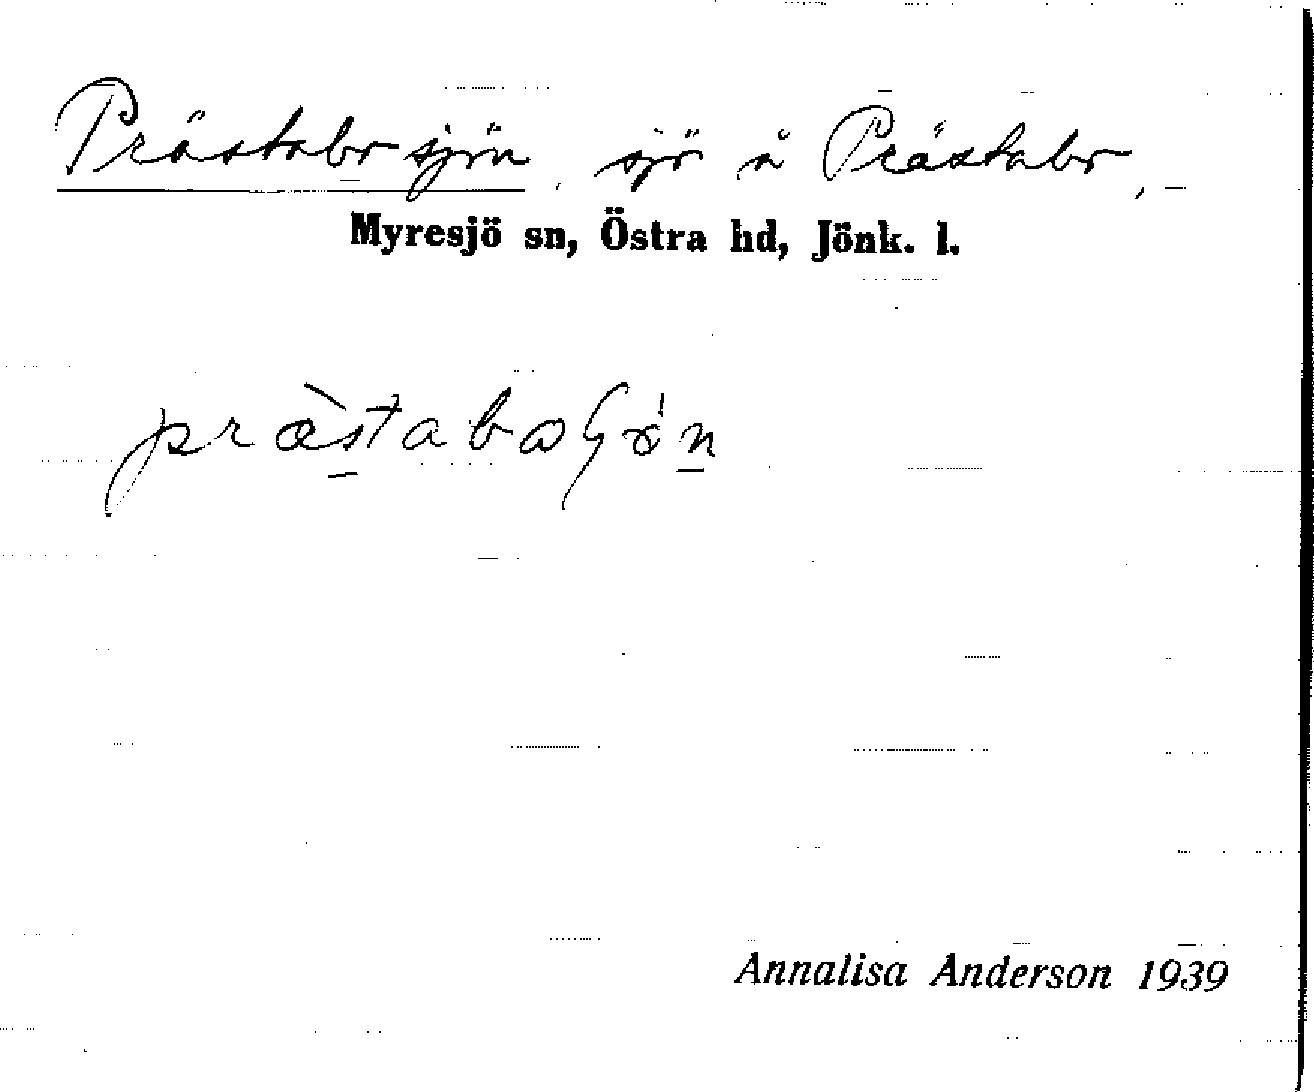 Prästabosjön, sjö å Prästabo,
Myresjö sn, Östra hd, Jönk. l.
Annalisa Anderson 1939